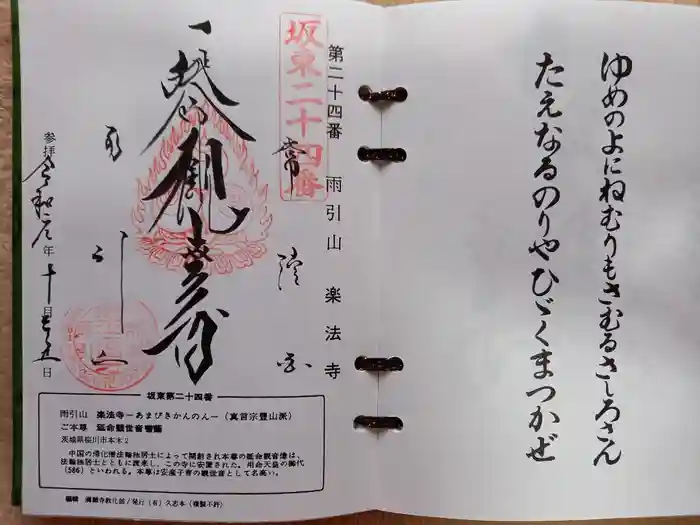 ゆめのよにねむりもさむるさしろさん
たえなるのりやひゞくまつかぜ
坂東二十四番
第二十四番 雨引山 楽法寺
参拝 令和二年十月
坂東第二十四番
雨引山 楽法寺－あまびきかんのん－（真言宗豊山派）
ご本尊 延命観世音菩薩
茨城県桜川市本木2
中国の帰化僧法輪独居士によって開創され本尊の延命観音像は、
法輪独居士とともに渡来し、この寺に安置された。用命天皇の御代
(586) といわれる。本尊は安産子育の観世音として名高い。
編輯 満願寺教化部／発行（有）久志本（複製不許）